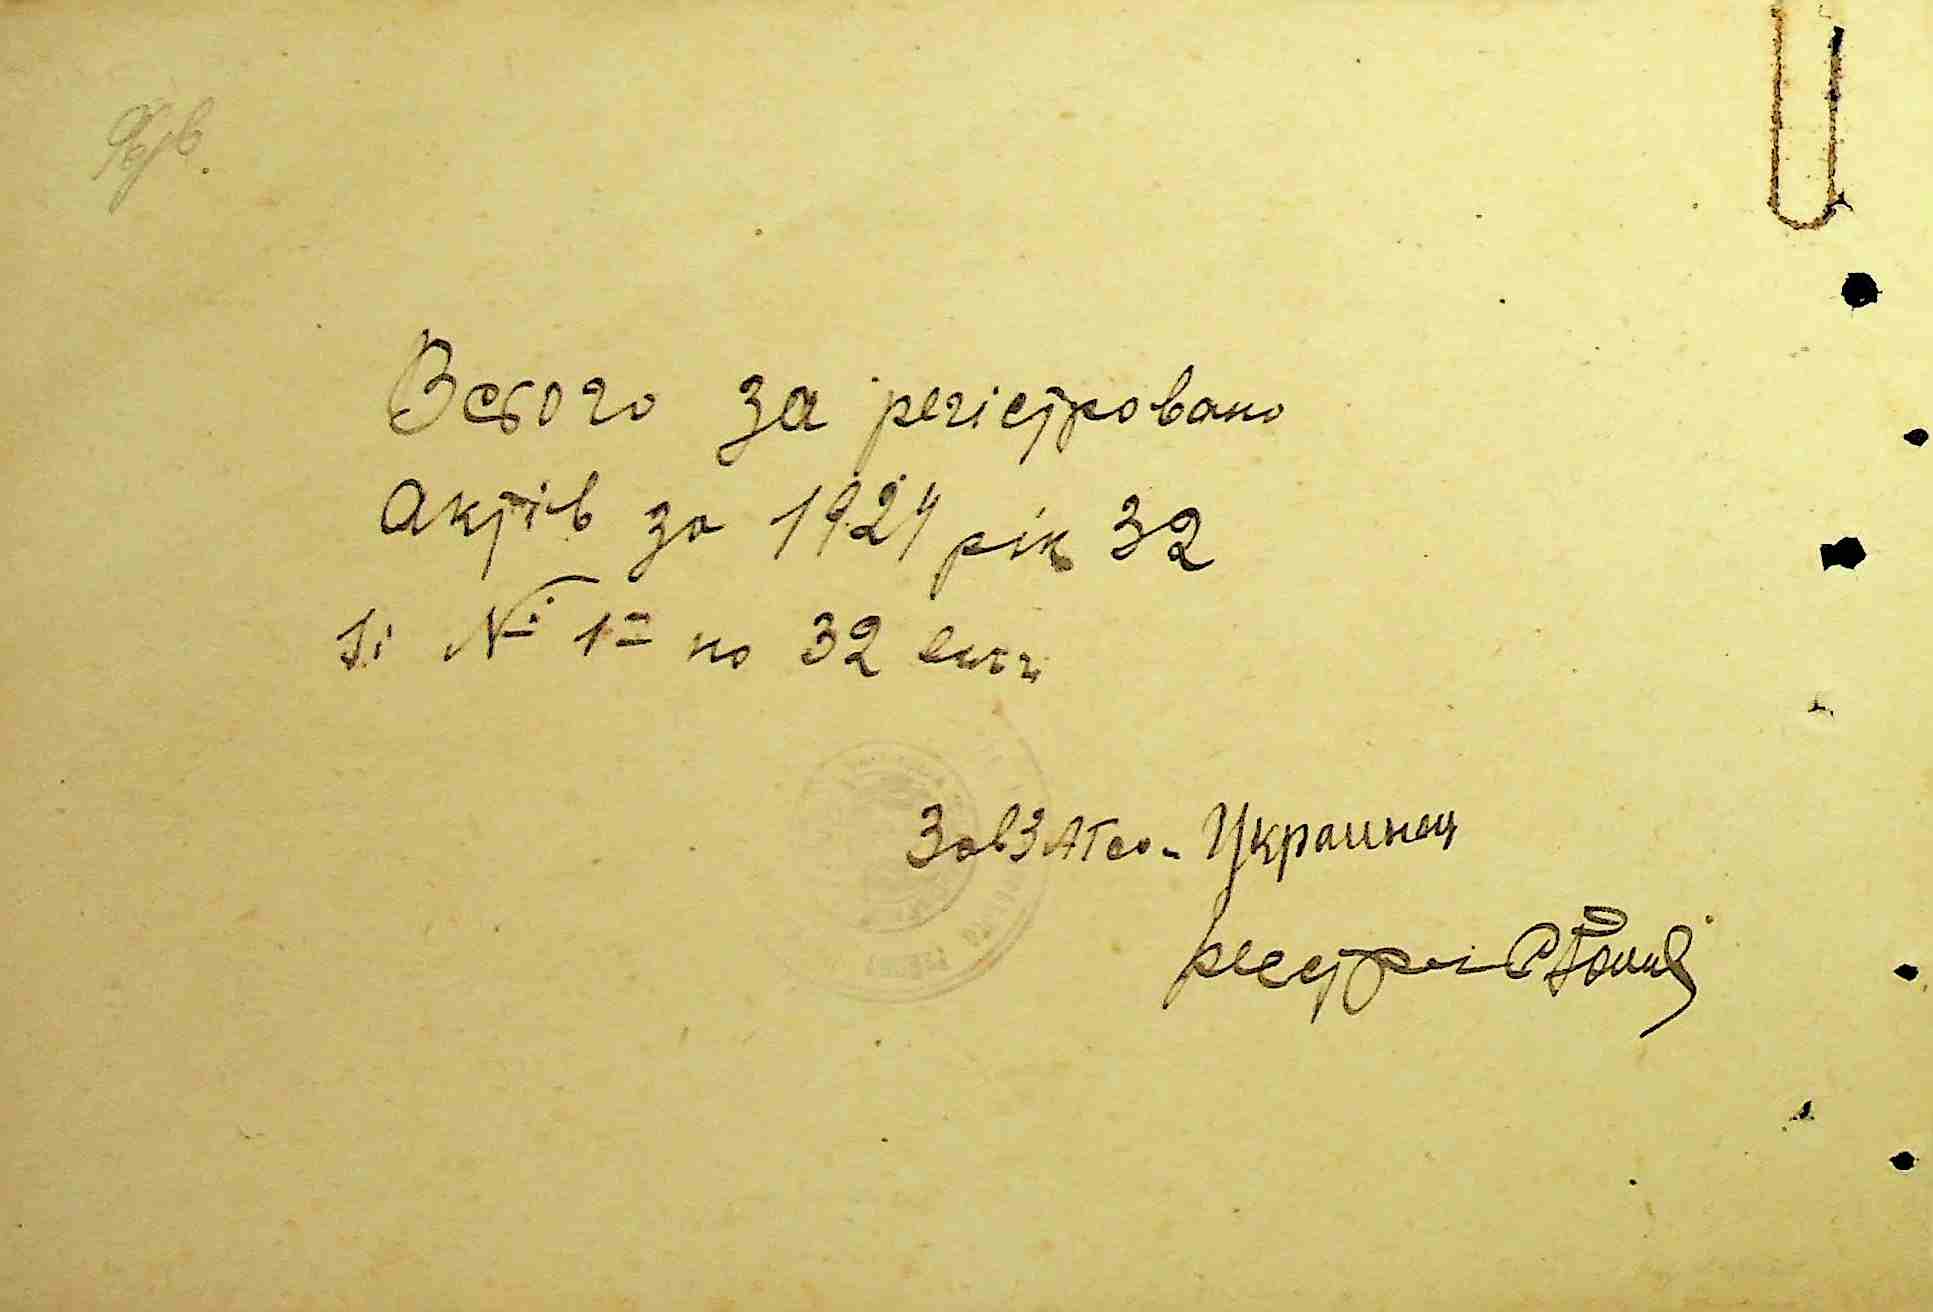 Всього за регістровано
актів за 1924 рік 32
Зі № 1 по 32 вкл.
ЗавЗАГСо- Украинец
регстрат